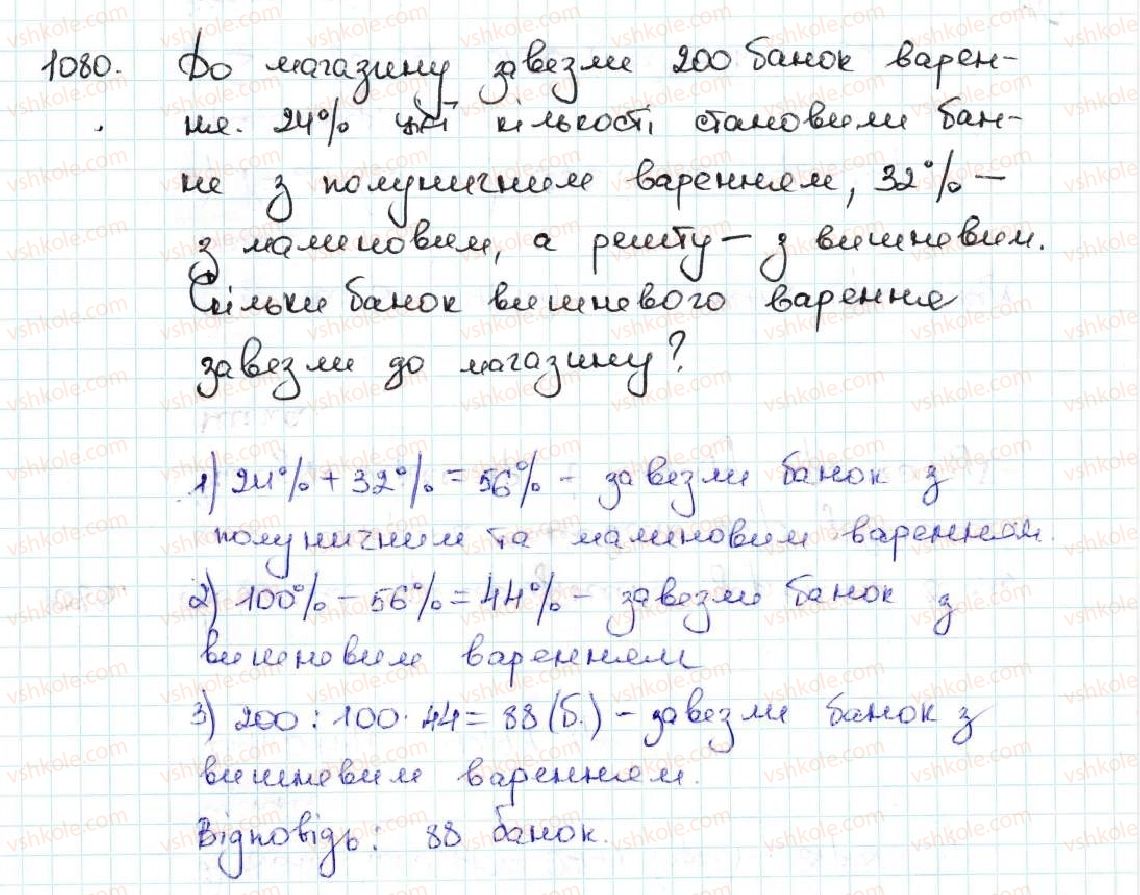 1080. До магазину завезли 200 банок варен-
ня. 24% цієї кількості становили бан-
ки з полуничним варенням, 32% –
з малиновим, а решту – з вишневим.
Скільки банок вишневого варення
завезли до магазину?
1) 24% + 32% = 56% – завезли банок з
полуничним та малиновим варенням.
2) 100% – 56% = 44% – завезли банок з
вишневим варенням
3) 200 : 100 · 44 = 88 (б.) – завезли банок з
вишневим варенням.
Відповідь: 88 банок.
vshkole.com